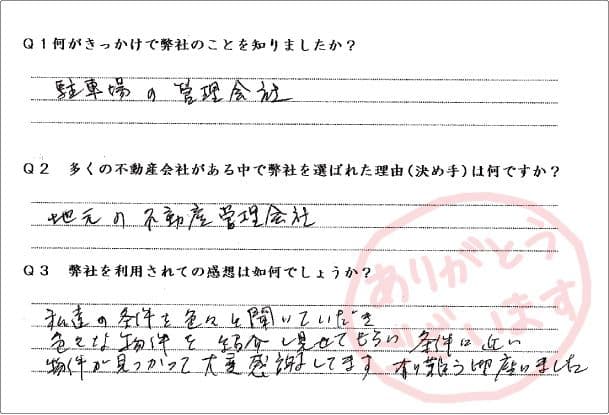 Q1何がきっかけで弊社のことを知りましたか？
駐車場の管理会社
Q2 多くの不動産会社がある中で弊社を選ばれた理由(決め手)は何ですか？
地元の不動産管理会社
Q3 弊社を利用されての感想は如何でしょうか？
私達の条件を色々と聞いていだき
色々な物件を紹介し見せてもらい条件に近い
物件が見つかって大変感謝してます 有り難う御座いました
ありがとう
ございます